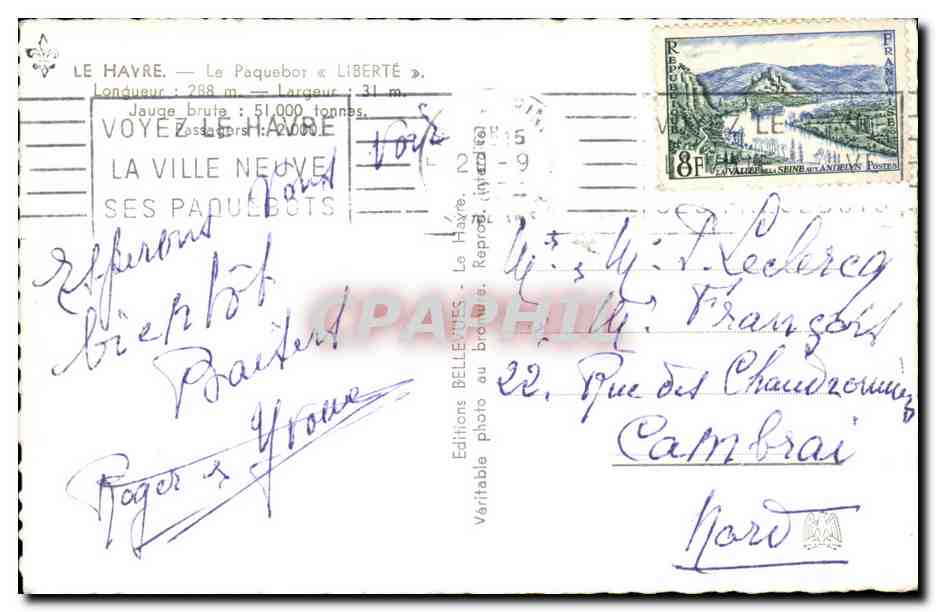 LE HAVRE. — Le Paquebot « LIBERTÉ ».
Longueur : 288 m. — Largeur : 31 m.
Jauge brute : 51.000 tonnes.
Passagers : 2.000.
VOYEZ LE HAVRE
LA VILLE NEUVE
SES PAQUEBOTS
15
2 -9
Esperons Vous Voir
bientôt
Baisers
Roger & Yvonne
Editions BELLEVUES - Le Havre.
Véritable photo au bromure. Reprod. interdite
REPUBLIQUE
FRANÇAISE
8F
LA VALLÉE DE LA SEINE AUX ANDELYS
POSTES
M. & M. P. Leclercq
& M. François
22, Rue des Chaudronniers
Cambrai
Nord
CPAPHIL